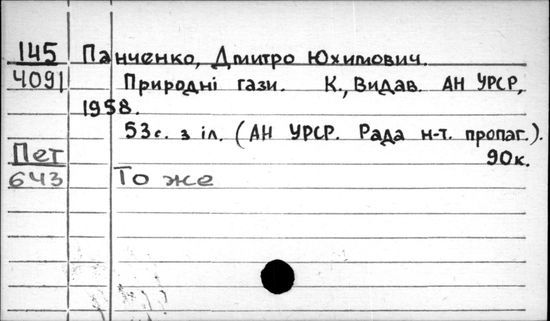 145 Панченко, Дмитро Юхимович.
4091 Природні гази. К., Видав. АН УРСР,
1958.
53с. з іл. (АН УРСР. Рада н-т. пропаг.).
Пет 90к.
643 То же